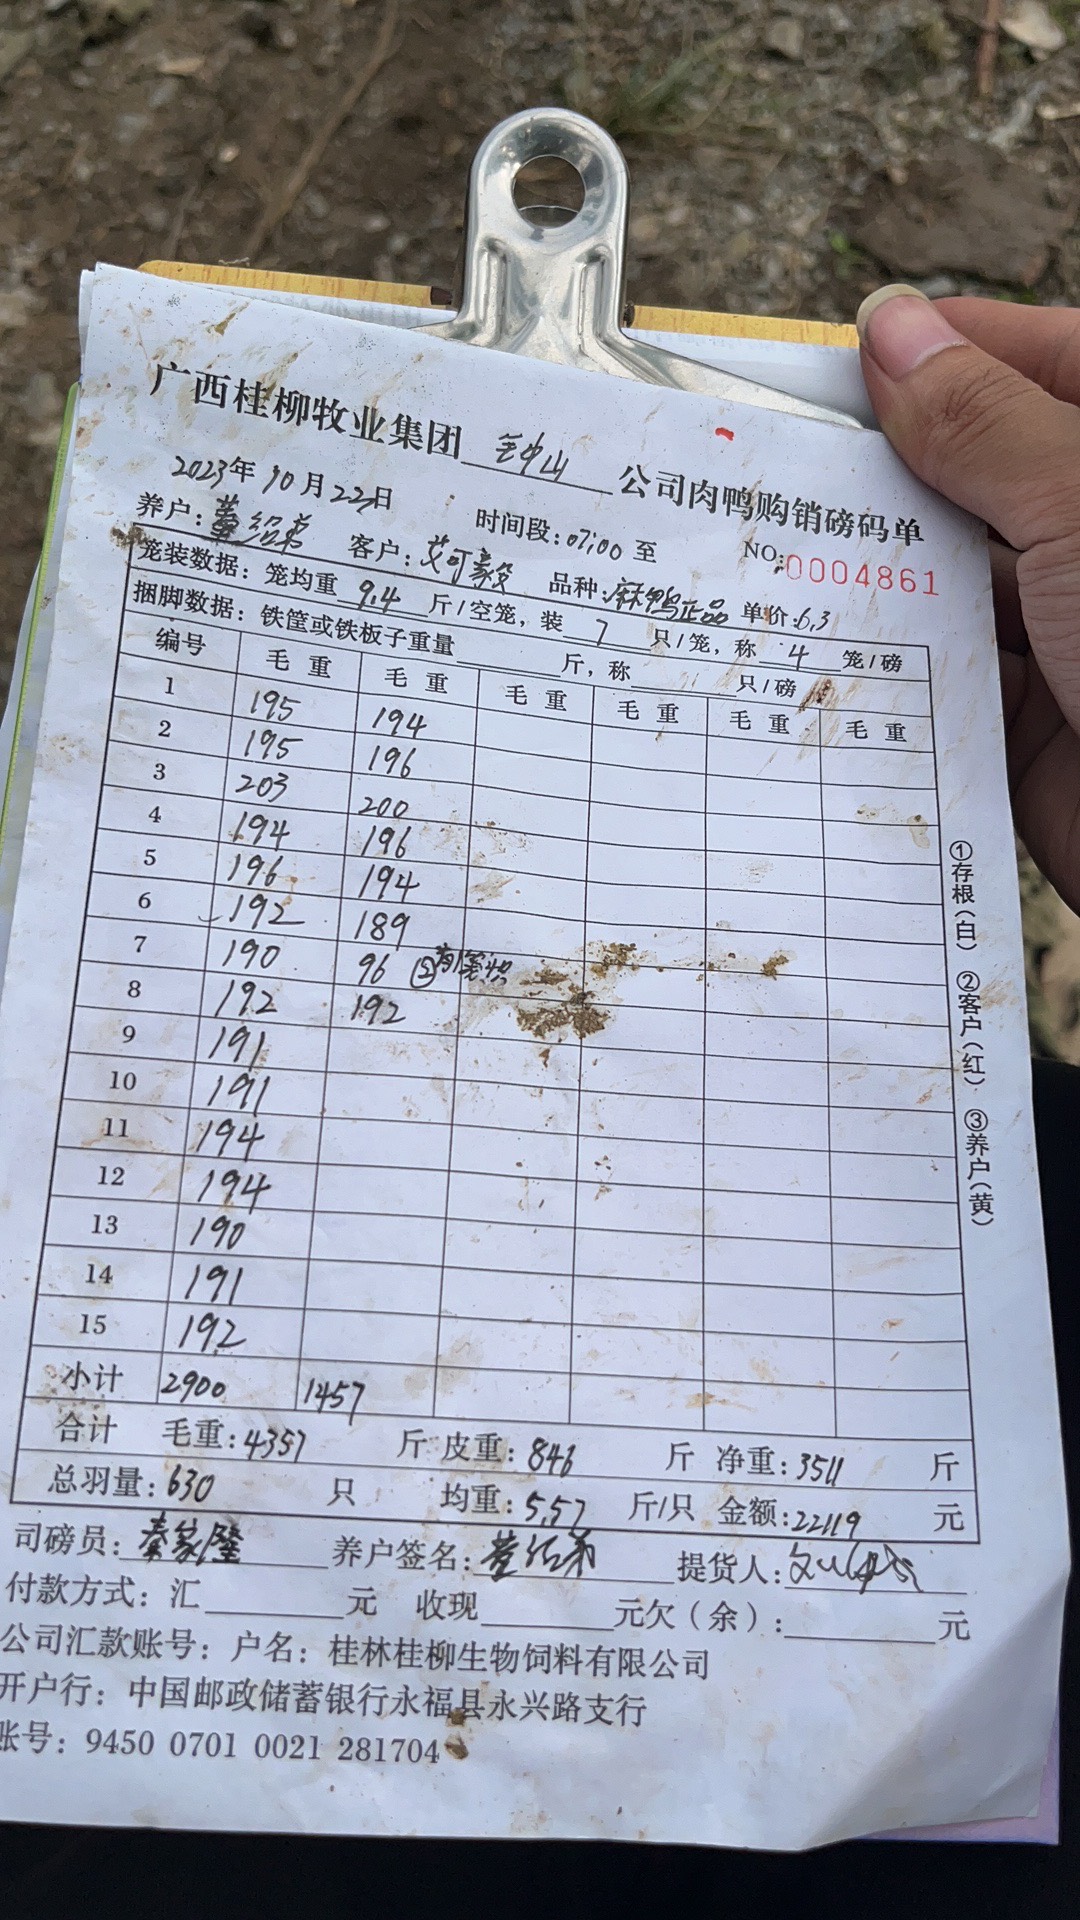 广西桂柳牧业集团 钟山 公司肉鸭购销磅码单
2023年10月22日 时间段:07:00 至 NO:0004861
养户: 董绍弟 客户: 艾可豪 品种:麻鸭正品 单价:6.3
笼装数据: 笼均重 9.4 斤/空笼, 装 7 只/笼, 称 4 笼/磅
捆脚数据: 铁筐或铁板子重量 斤, 称 只/磅
编号 毛重 毛重 毛重 毛重 毛重 毛重
1 195 194
2 195 196
3 203 200
4 194 196
5 196 194
6 192 189
7 190 96 ②
8 192 192
9 191
10 191
11 194
12 194
13 190
14 191
15 192
小计 2900 1457
合计 毛重:4357 斤 皮重:846 斤 净重:3511 斤
总羽量:630 只 均重:5.57 斤/只 金额:22119 元
司磅员: 秦家隆 养户签名: 董绍弟 提货人:
付款方式: 汇 元 收现 元欠(余): 元
公司汇款账号: 户名: 桂林桂柳生物饲料有限公司
开户行: 中国邮政储蓄银行永福县永兴路支行
账号: 9450 0701 0021 281704
①存根(白) ②客户(红) ③养户(黄)